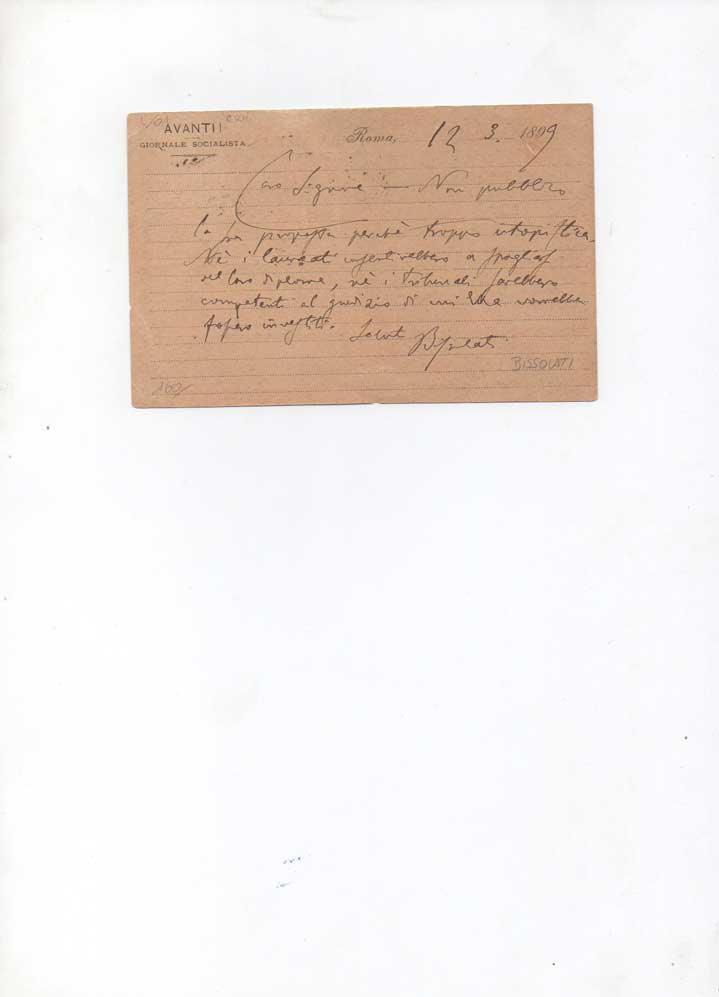 AVANTI!
GIORNALE SOCIALISTA
Roma, 12 3. 1899
Caro Signore – Non pubblico
la sua proposta perchè troppo utopistica.
Nè i laureati consentirebbero a spogliarsi
del loro diploma, nè i tribunali sarebbero
competenti al giudizio di cui Ella vorrebbe
fossero investiti. Saluti
Bissolati
BISSOLATI
160/